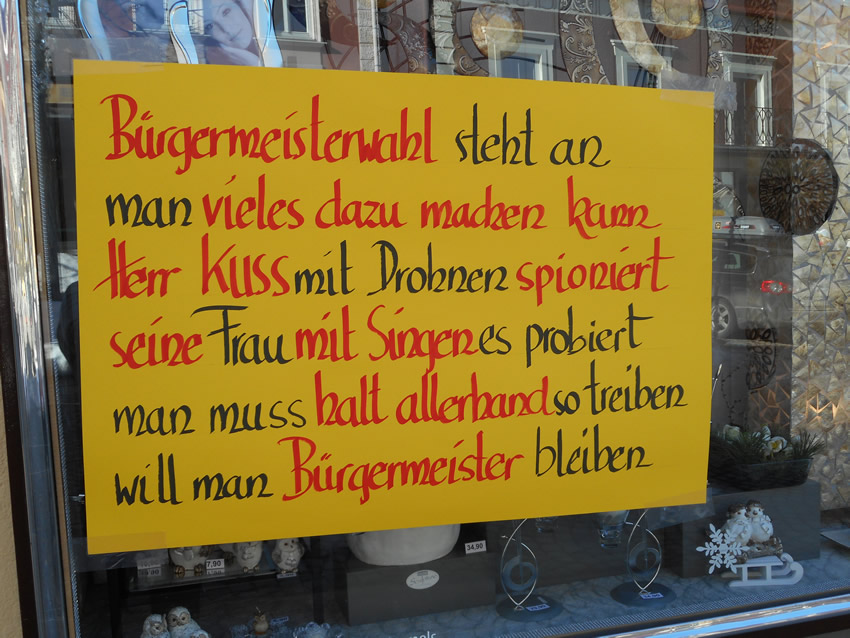 Bürgermeisterwahl steht an
man vieles dazu machen kann
Herr KUSS mit Drohnen spioniert
seine Frau mit Singen es probiert
man muss halt allerhand so treiben
will man Bürgermeister bleiben
7,90
34,90